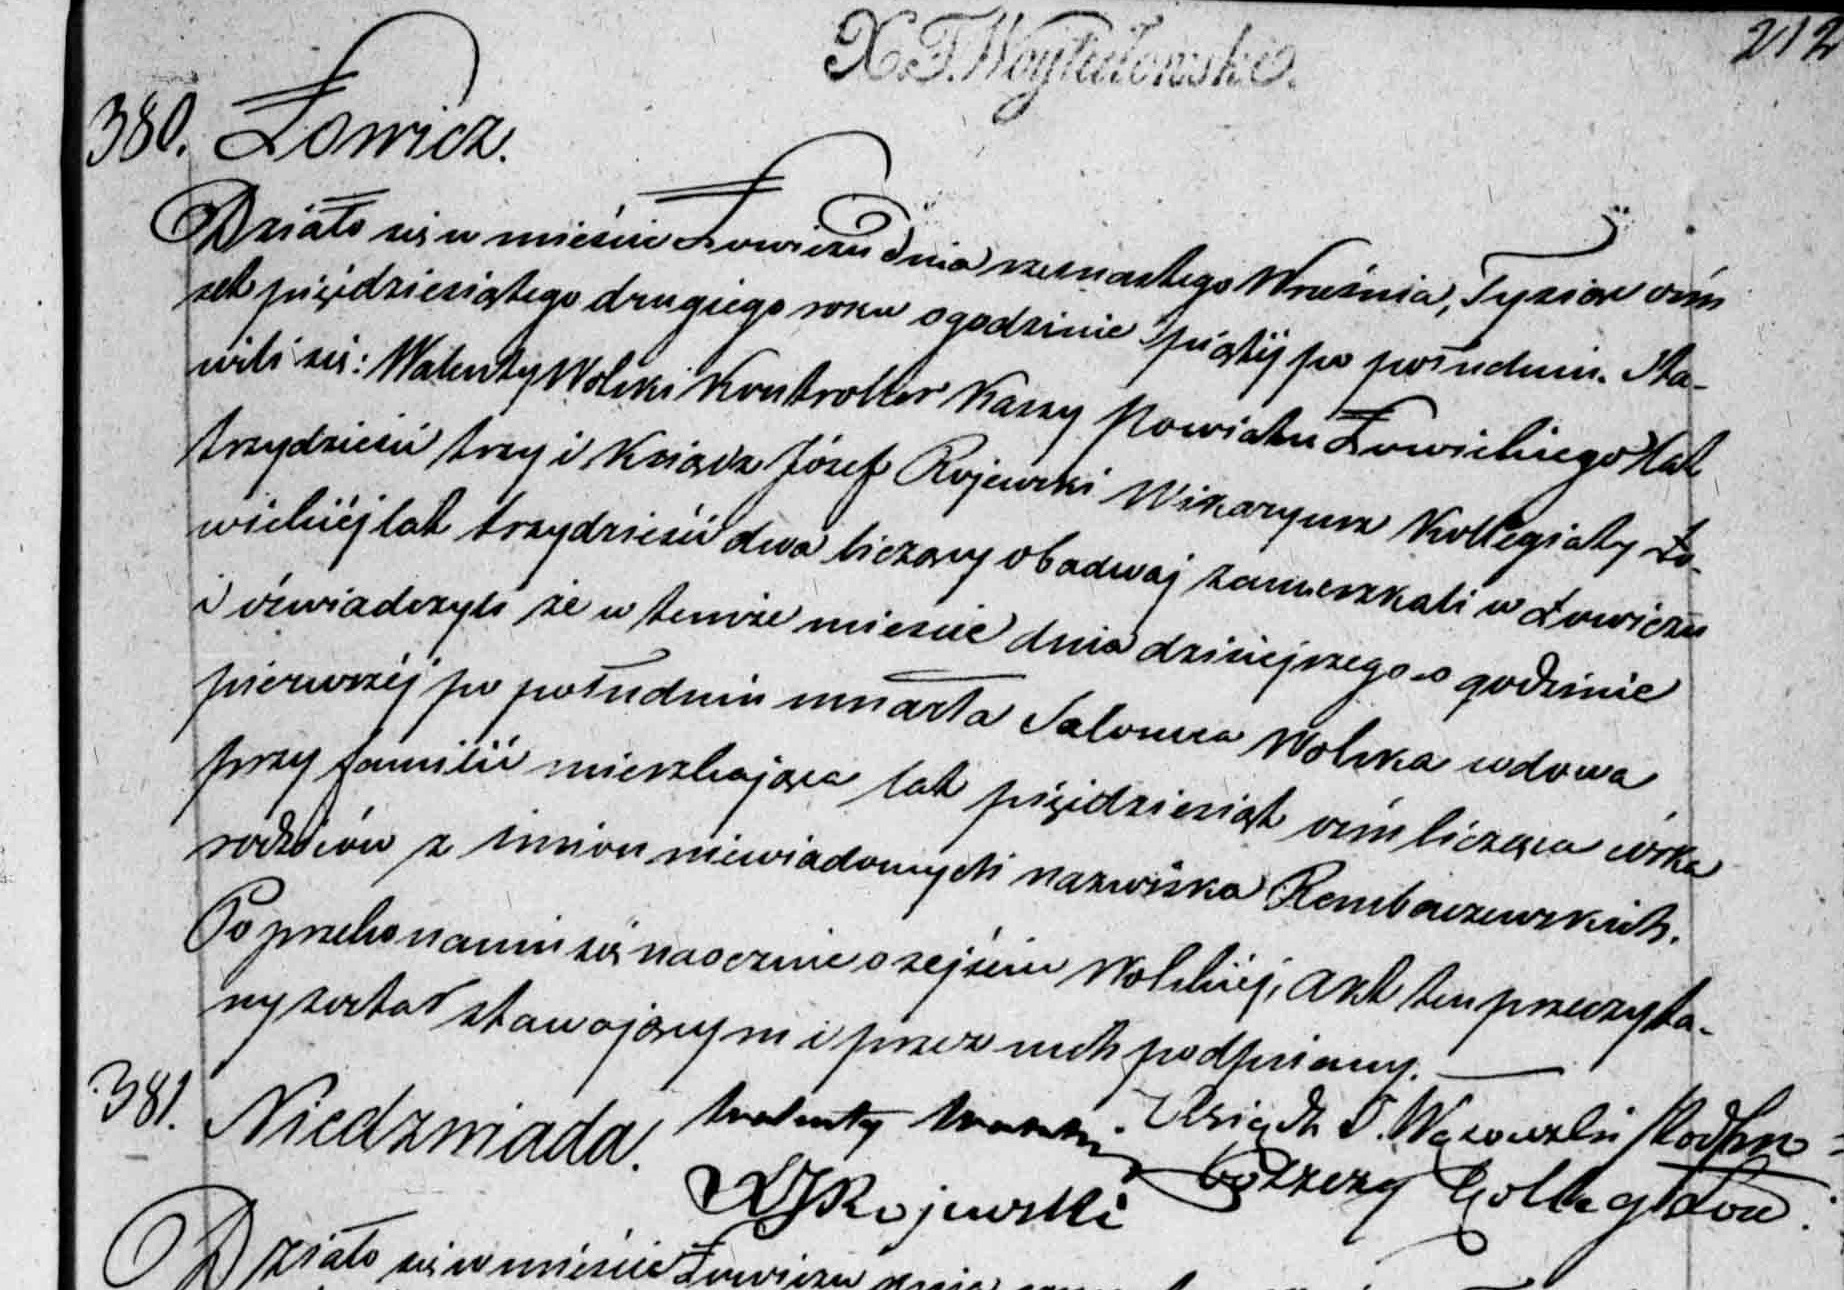 X. F. Woytulewski.
212
380. Łowicz.
Działo się w mieście Łowiczu dnia szesnastego Września, Tysiąc ośm
set pięćdziesiątego drugiego roku o godzinie piątéj po południu. Sta-
wili się: Walenty Wolski Kontroller Kassy Powiatu Łowickiego lat
trzydzieści trzy i Ksiądz Józef Rojewski Wikaryusz Kollegiaty Ło-
wickiéj lat trzydzieści dwa liczący obadwaj zamieszkali w Łowiczu
i oświadczyli że w temże mieście dnia dzisiejszego o godzinie
pierwszéj po południu umarła Salomea Wolska wdowa
przy familii mieszkająca lat pięćdziesiąt ośm licząca córka
rodziców z imion niewiadomych nazwiska Rembaczewskich.
Po przekonaniu się naocznie o zejściu Wolskiéj, Akt ten przeczyta-
ny został stawającym i przez nich podpisany.
Walenty Wolski. Ksiądz
XJRojewski Kolleg Łow.
381. Niedzwiada.
Działo się w mieście Łowiczu dnia